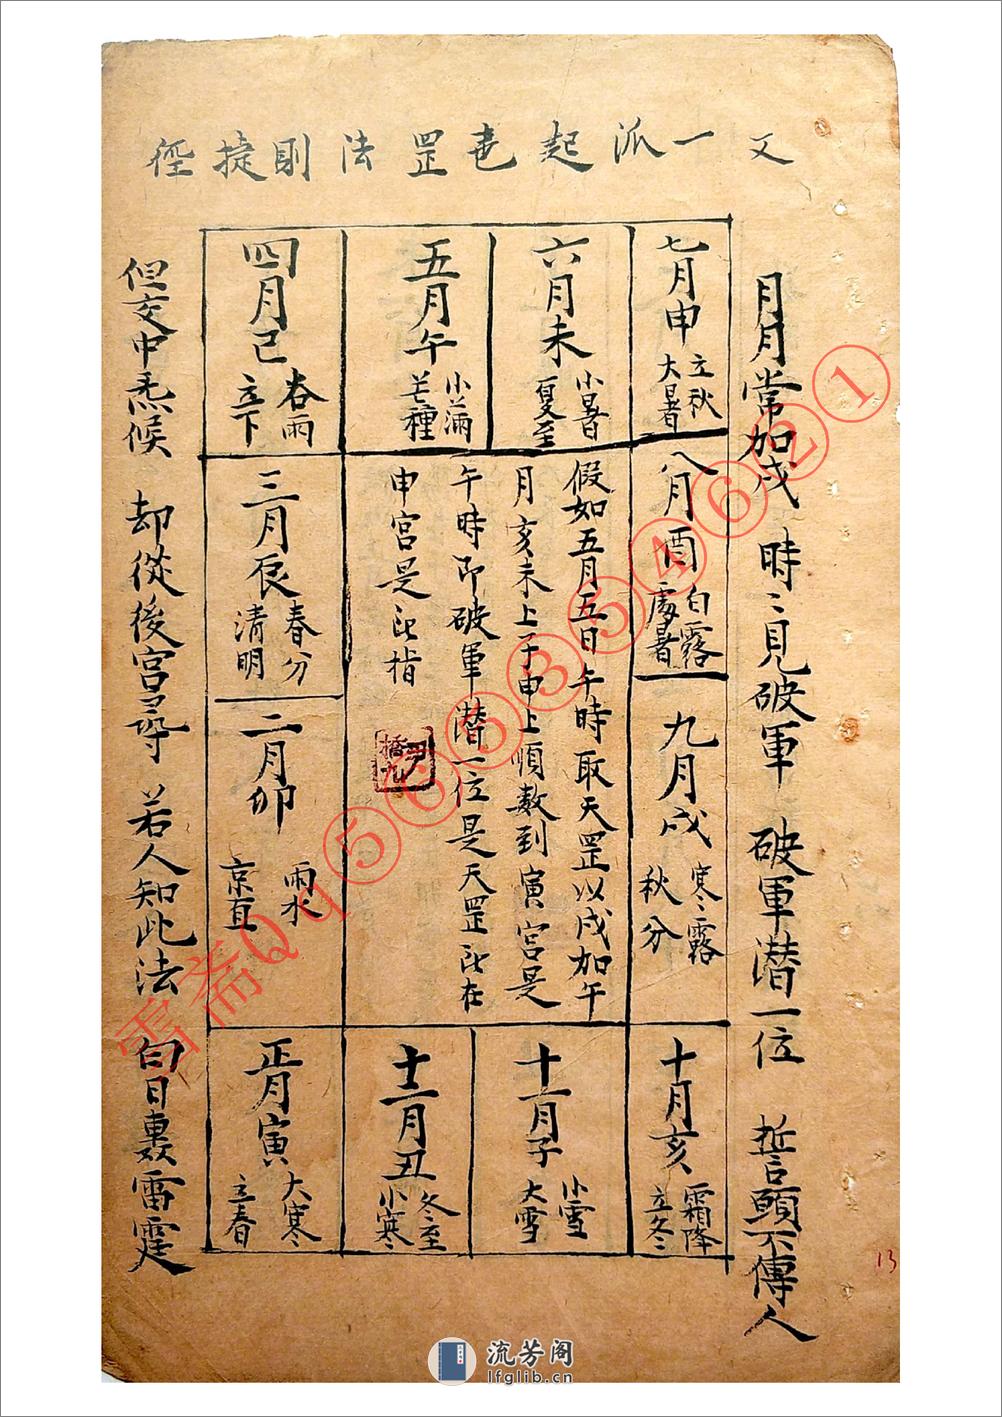 又一派起黿罡法則捷徑
月月常加戌 時〻見破軍 破軍潛一位 誓願不傳人
七月申
立秋
大暑
六月未
小暑
夏至
五月午
小滿
芒種
四月巳
谷雨
立下
八月酉
白露
處暑
九月戌
寒露
秋分
假如五月五日午時取天罡以戌加午
月亥未上子申上順数到寅宮是
午時即破軍潛一位是天罡訣在
申宮是訣指
三月辰
春分
清明
二月卯
雨水
京直
十月亥
霜降
立冬
十一月子
小雪
大雪
十二月丑
冬至
小寒
正月寅
大寒
立春
但交中炁候 却從後宮尋 若人知此法 白日轟雷霆
橋九
13
雪斋Qq566354621
流芳阁
lfglib.cn